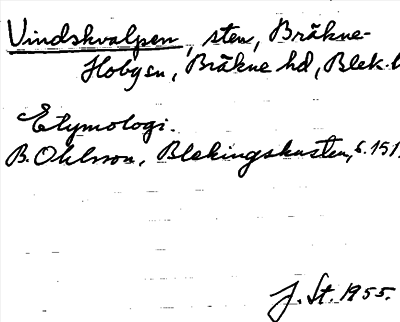 Vindskvalpen, sten, Bräkne-
Hoby sn, Bräkne hd, Blek. l
Etymologi.
B. Ohlsson, Blekingskusten, s. 151.
J. St. 1955.